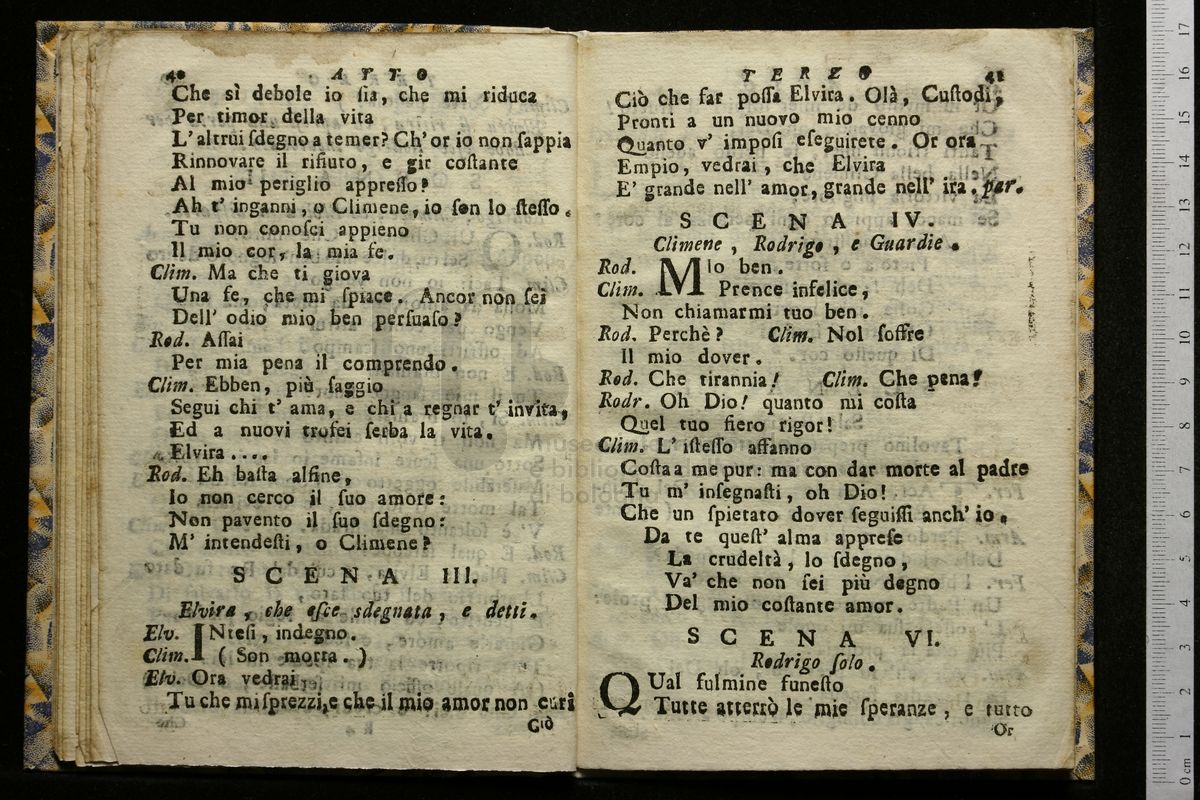 40 ATTO
Che sì debole io ſia, che mi riduca
Per timor della vita
L' altrui ſdegno a temer? Ch' or io non ſappia
Rinnovare il rifiuto, e gir coſtante
Al mio periglio appreſſo?
Ah t' inganni, o Climene, io ſon lo ſteſſo.
Tu non conoſci appieno
Il mio cor, la mia fe.
Clim. Ma che ti giova
Una fe, che mi ſpiace. Ancor non ſei
Dell' odio mio ben perſuaſo?
Rod. Aſſai
Per mia pena il comprendo.
Clim. Ebben, più ſaggio
Segui chi t' ama, e chi a regnar t' invita,
Ed a nuovi trofei ſerba la vita.
Elvira....
Rod. Eh baſta alfine,
Io non cerco il ſuo amore:
Non pavento il ſuo ſdegno:
M' intendeſti, o Climene?
SCENA III.
Elvira, che eſce sdegnata, e detti.
Elv. INteſi, indegno.
Clim. (Son morta.)
Elv. Ora vedrai
Tu che miſprezzi, e che il mio amor non curi
Ciò
TERZO 41
Ciò che far poſſa Elvira. Olà, Cuſtodi,
Pronti a un nuovo mio cenno
Quanto v' impoſi eſeguirete. Or ora
Empio, vedrai, che Elvira
E' grande nell' amor, grande nell' ira. par.
SCENA IV.
Climene, Rodrigo, e Guardie.
Rod. MIo ben.
Clim. Prence infelice,
Non chiamarmi tuo ben.
Rod. Perchè? Clim. Nol ſoffre
Il mio dover.
Rod. Che tirannia! Clim. Che pena!
Rodr. Oh Dio! quanto mi coſta
Quel tuo fiero rigor!
Clim. L' iſteſſo affanno
Coſta a me pur: ma con dar morte al padre
Tu m' inſegnaſti, oh Dio!
Che un ſpietato dover ſeguiſſi anch' io.
Da te queſt' alma appreſe
La crudeltà, lo ſdegno,
Va' che non ſei più degno
Del mio coſtante amor.
SCENA VI.
Rodrigo ſolo.
QUal fulmine funeſto
Tutte atterrò le mie ſperanze, e tutto
Or